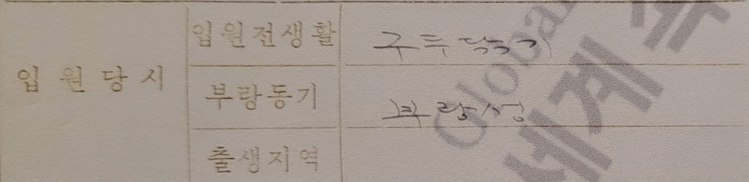 입원당시
입원전생활 구두닦기
부랑동기 부랑성
출생지역
Global
세계